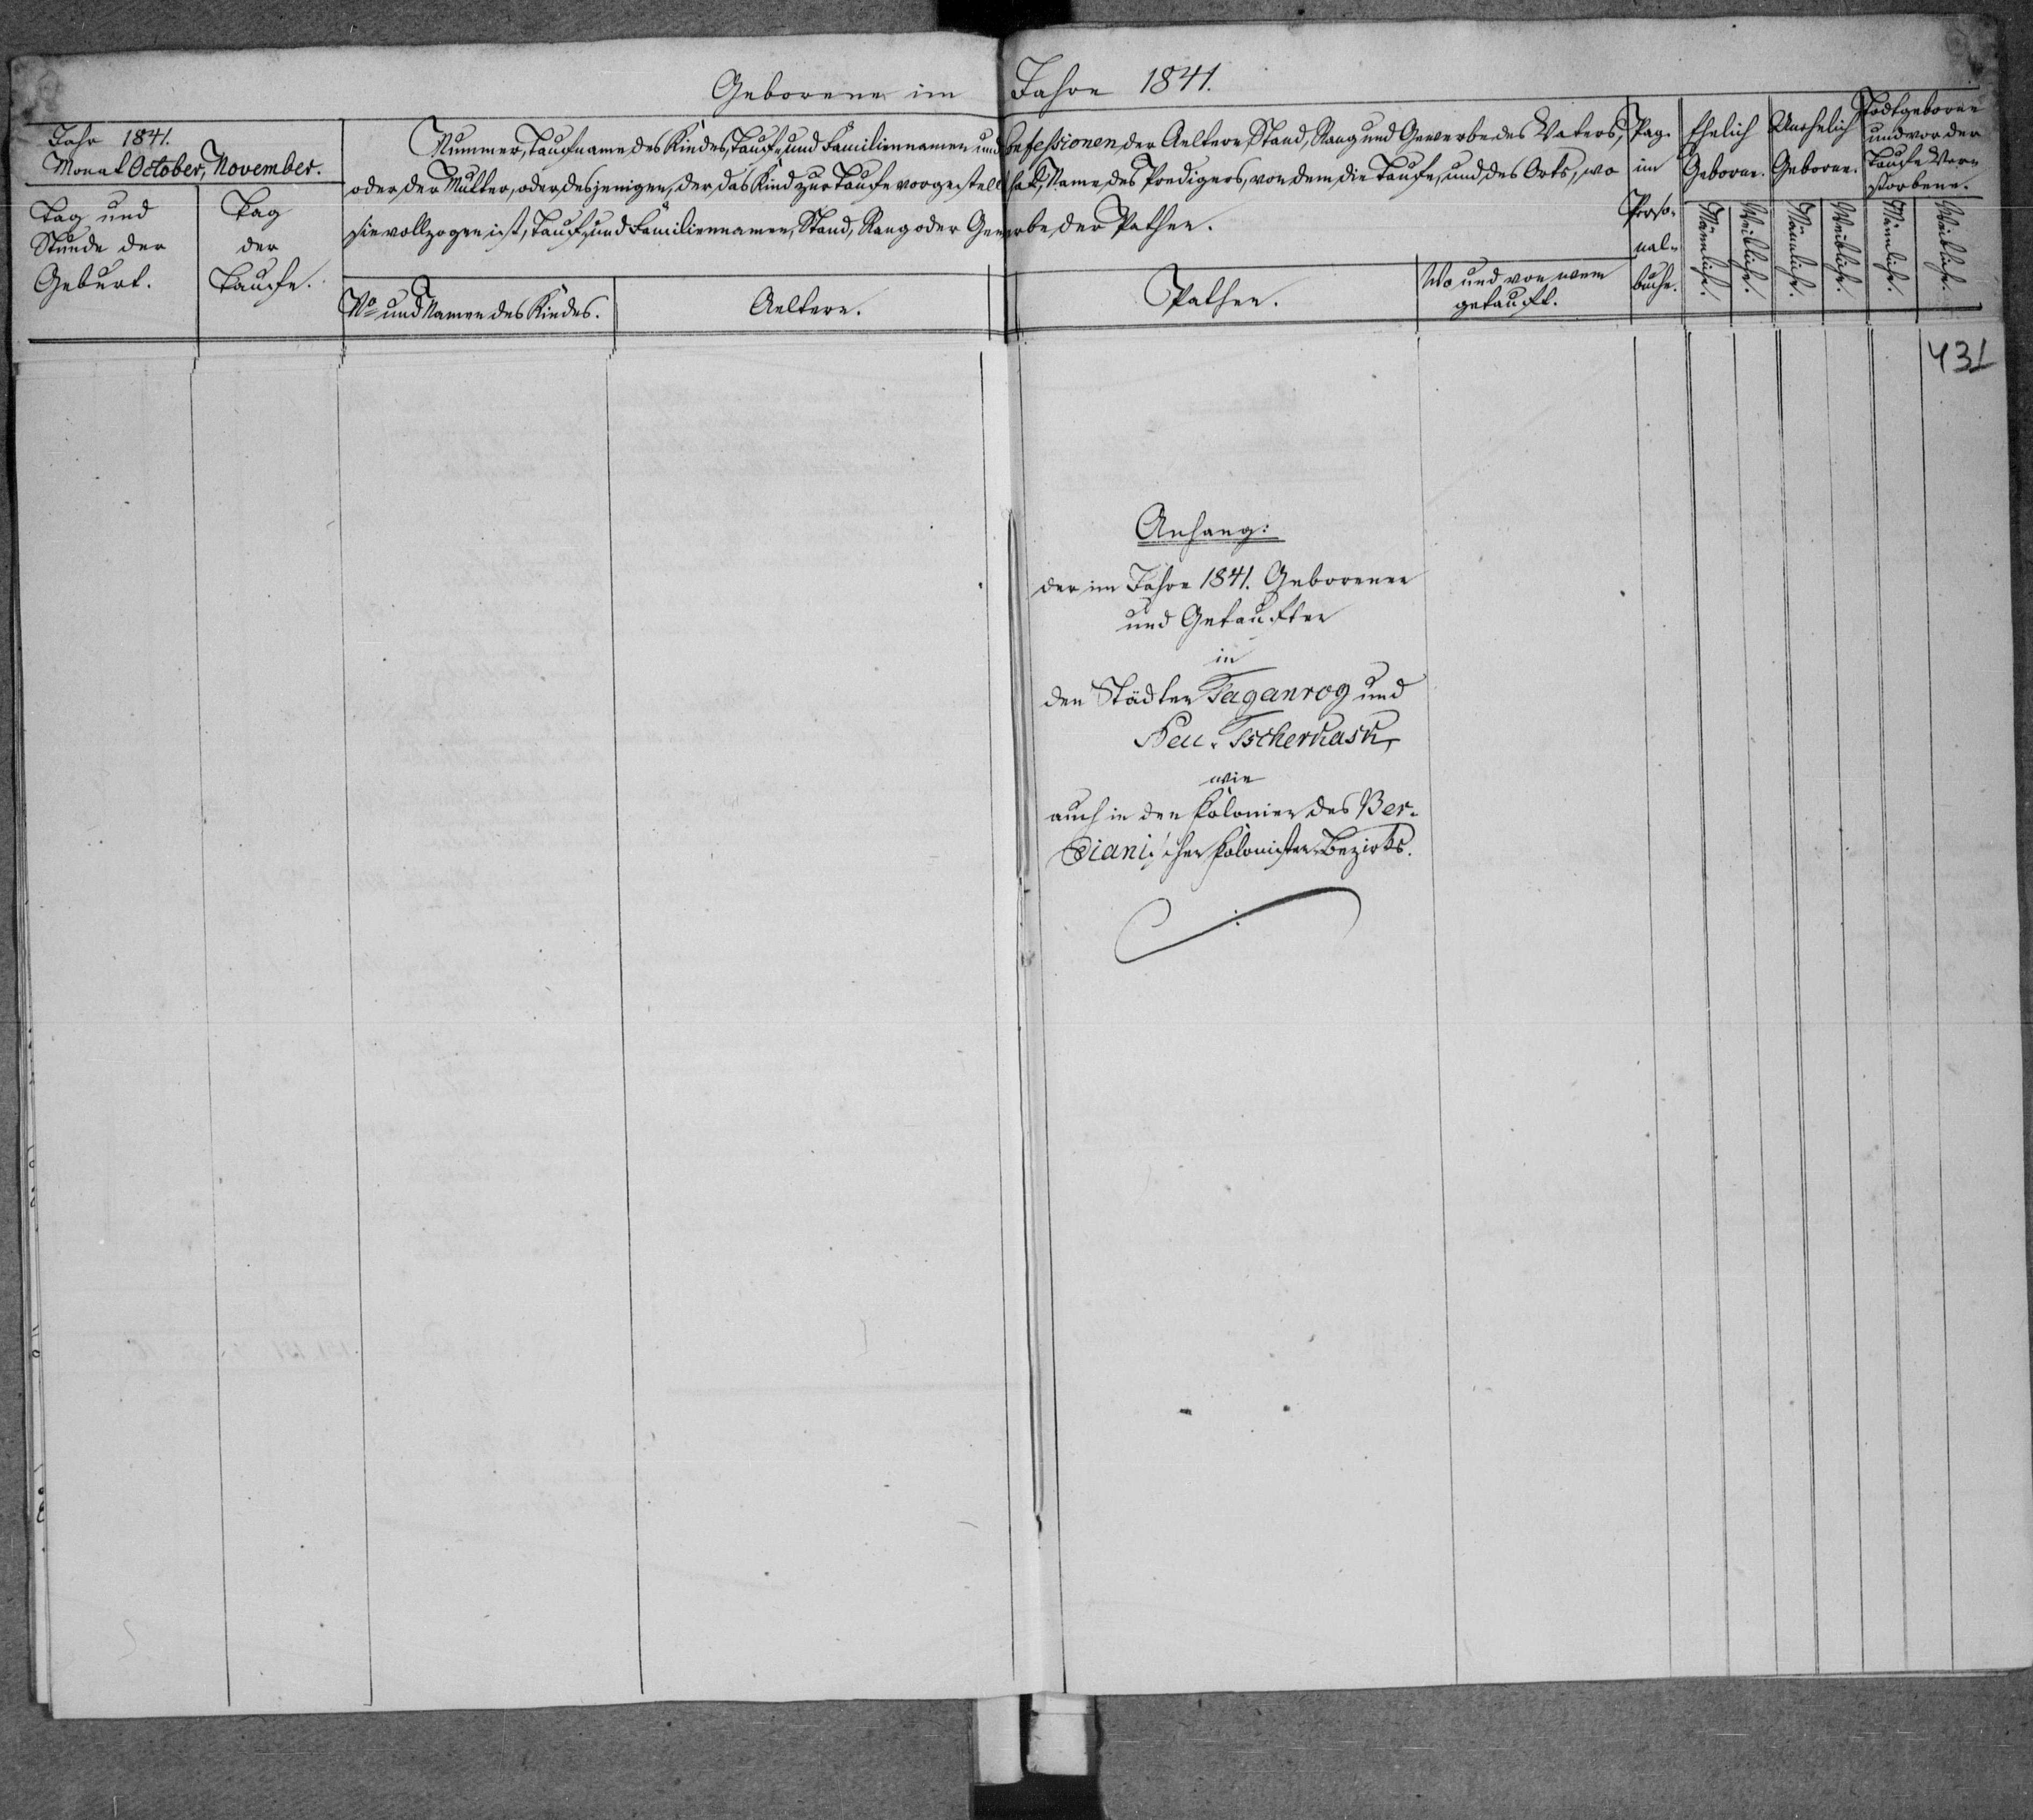 Geborene im Jahre 1841.
Jahr 1841.
Monat October, November.
Tag und
Stunde der
Geburt.
Tag
der
Taufe.
Nummer, Taufname des Kindes, Tauf- und Familiennamen und Confessionen der Aeltern, Stand, Rang und Gewerbe des Vaters,
oder der Mutter, oder desjenigen, der das Kind zur Taufe vorgestellt hat, Name des Predigers, von dem die Taufe, und des Orts, wo
sie vollzogen ist, Tauf- und Familiennamen, Stand, Rang oder Gewerbe der Pathen.
No und Namen des Kindes.
Aeltern.
Pathen.
Wo und von wem
getauft.
Pag.
im
Perso-
nal-
buche.
Ehelich
Geborne.
Unehelich
Geborne.
Todtgeborne
und vor der
Taufe Ver-
storbene.
Männliche.
Weibliche.
Männliche.
Weibliche.
Männliche.
Weibliche.
431
Anhang:
der im Jahre 1841. Geborenen
und Getauften
in
den Städten Taganrog und
Neu-Tscherkask,
wie
auch in den Kolonien des Ber-
dianischen Kolonisten-Bezirks.